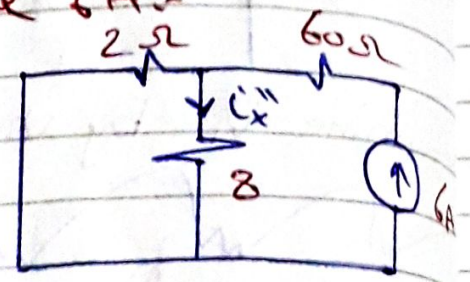 2Ω 60Ω
ix'''
8
6A